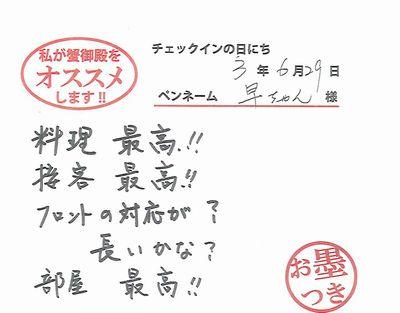 私が蟹御殿を
オススメ
します!!
チェックインの日にち
3年6月29日
ペンネーム 早ちゃん 様
料理 最高!!
接客 最高!!
フロントの対応が?
長いかな?
部屋 最高!!
お墨
つき